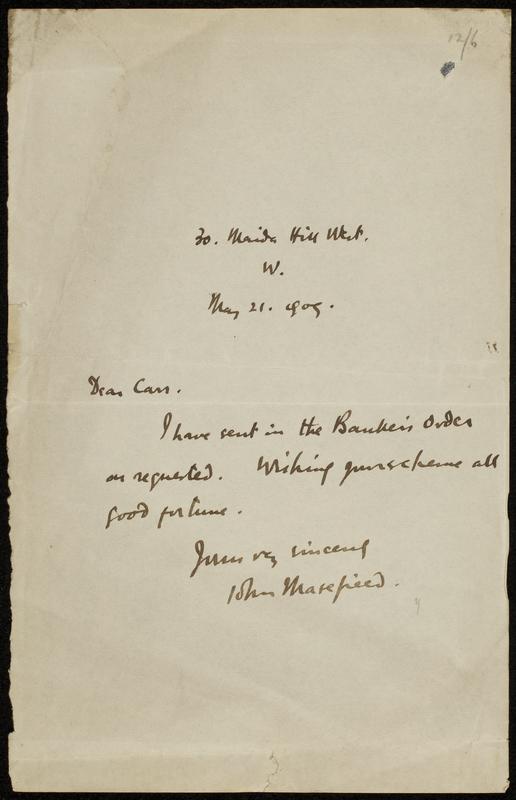 12/6
30. Maida Hill West.
W.
May 21. 1909.
Dear Carr.
I have sent in the Banker's Order
as requested. Wishing your scheme all
good fortune.
Yours very sincerely
John Masefield.